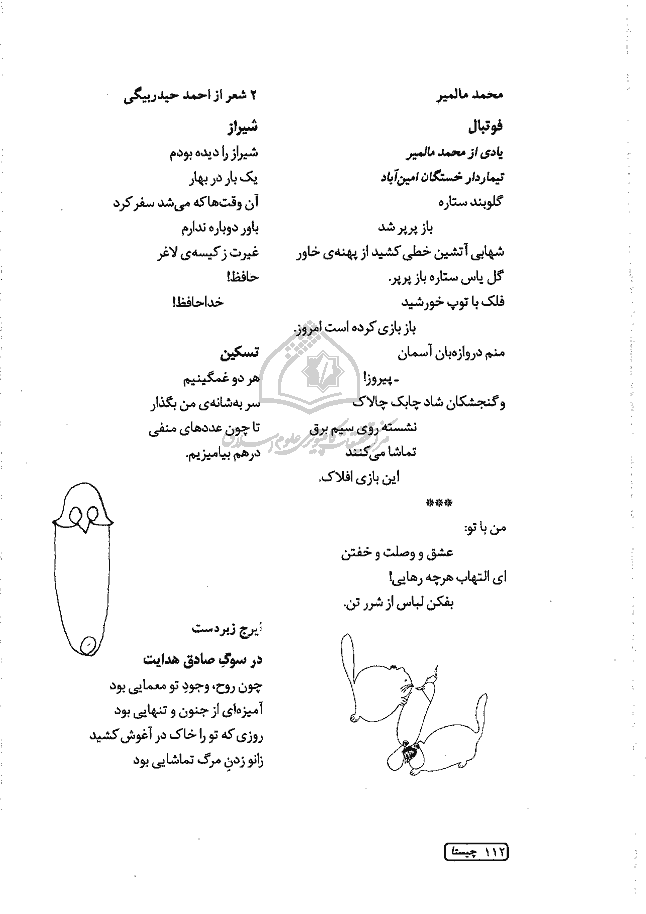 محمد مالمیر
فوتبال
یادی از محمد مالمیر
تیماردار خستگان امین‌آباد
گلوبند ستاره
باز پرپر شد
شهابی آتشین خطی کشید از پهنه‌ی خاور
گل یاس ستاره باز پرپر.
فلک با توپ خورشید
باز بازی کرده است امروز.
منم دروازه‌بان آسمان
ـ پیروز!
و گنجشکان شاد چابک چالاک
نشسته روی سیم برق
تماشا می‌کنند
این بازی افلاک.
***
من با تو:
عشق و وصلت و خفتن
ای التهاب هرچه رهایی!
بفکن لباس از شرر تن.
۲ شعر از احمد حیدربیگی
شیراز
شیراز را دیده بودم
یک بار در بهار
آن وقت‌ها که می‌شد سفر کرد
باور دوباره ندارم
غیرت ز کیسه‌ی لاغر
حافظ!
خداحافظ!
تسکین
هر دو غمگینیم
سر به‌شانه‌ی من بگذار
تا چون عددهای منفی
درهم بیامیزیم.
ایرج زبردست
در سوگ صادق هدایت
چون روح، وجودِ تو معمایی بود
آمیزه‌ای از جنون و تنهایی بود
روزی که تو را خاک در آغوش کشید
زانو زدنِ مرگ تماشایی بود
۱۱۲ چیستا